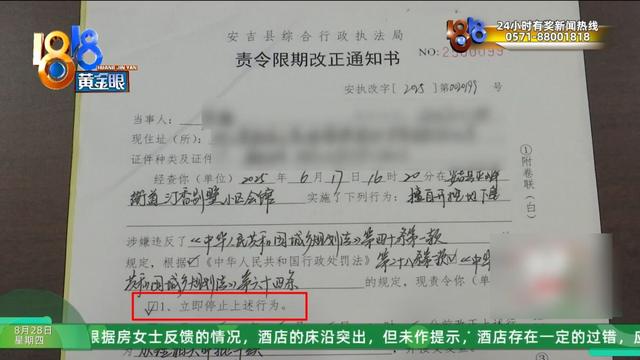 安吉县综合行政执法局
24小时有奖新闻热线
0571-88001818
1818
HUANG JIN YAN
黄金眼
责令限期改正通知书
NO:2500099
安执改字[2025]第00099号
当事人:
现住址(所):
证件种类及证件
经查你(单位)2025年6月17日16时20分在安吉县
街道汀香别墅小区会馆 实施了下列行为:擅自开挖地下室
①附卷联(白)
涉嫌违反了《中华人民共和国城乡规划法》第四十条第一款
规定,根据《中华人民共和国行政处罚法》第二十八条第一款《中华人民
共和国城乡规划法》第六十四条 的规定,现责令你(
☑1、立即停止上述行为。
8月28日
星期四
根据房女士反馈的情况,酒店的床沿突出,但未作提示,酒店存在一定的过错,